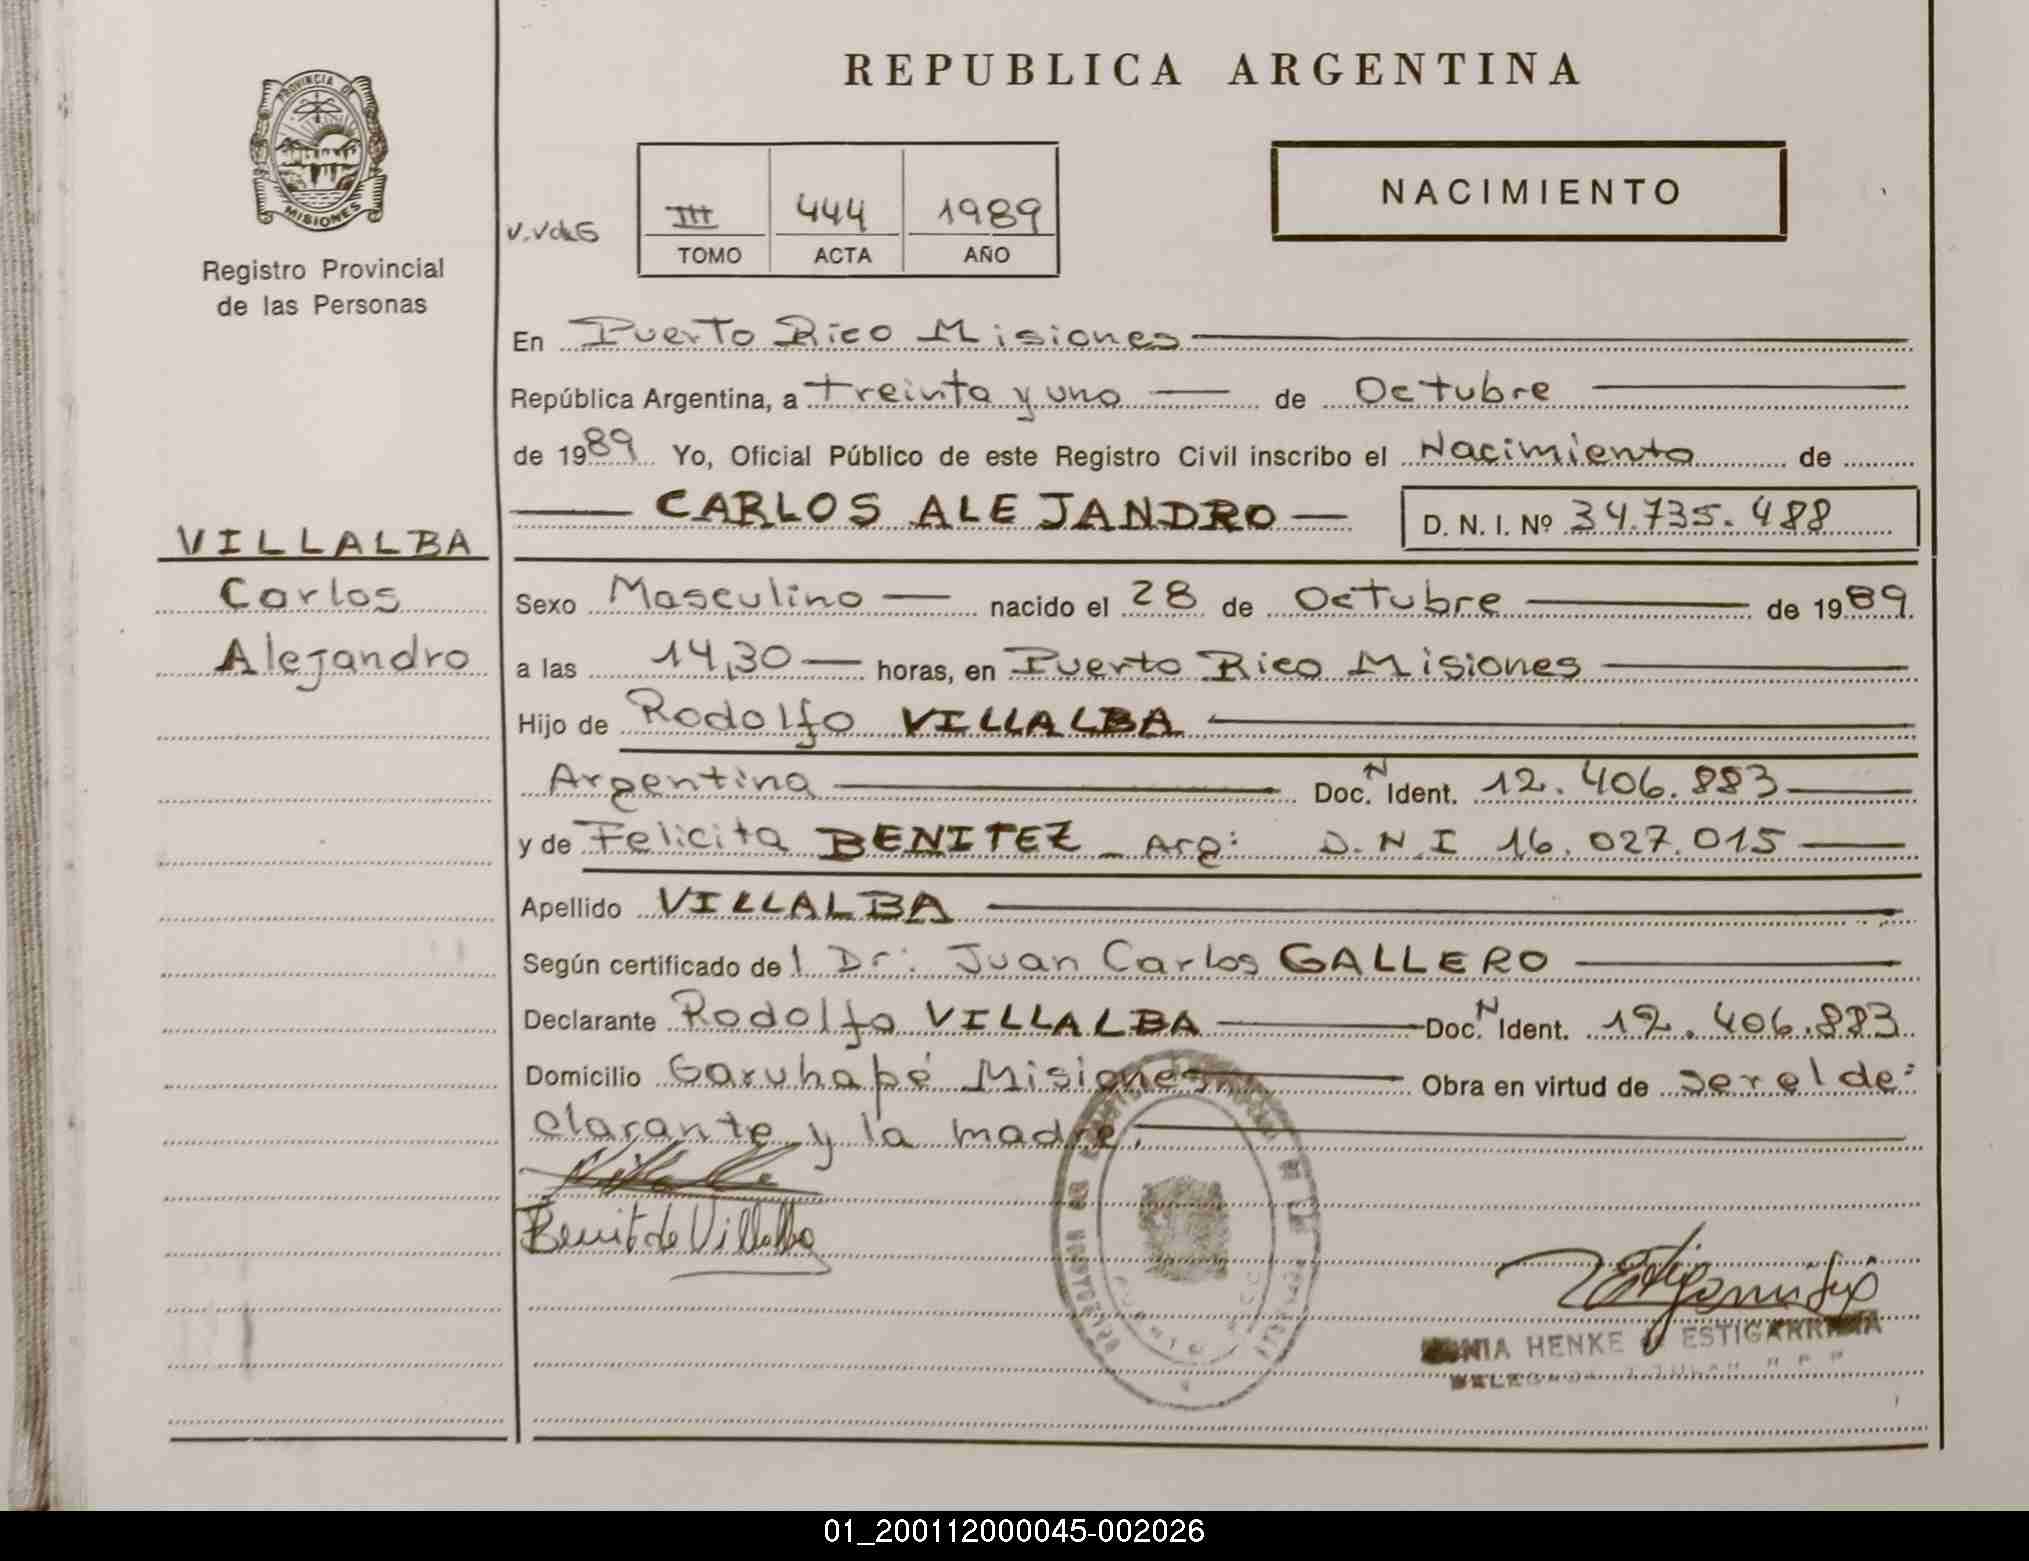 REPUBLICA ARGENTINA
PROVINCIA DE
MISIONES
Registro Provincial
de las Personas
NACIMIENTO
III 444 1989
TOMO ACTA AÑO
En Puerto Rico Misiones
República Argentina, a treinta y uno de Octubre
de 1989 Yo, Oficial Público de este Registro Civil inscribo el Nacimiento de
CARLOS ALEJANDRO D. N. I. Nº 34.735.488
VILLALBA
Carlos
Alejandro
Sexo Masculino nacido el 28 de Octubre de 1989
a las 14,30 horas, en Puerto Rico Misiones
Hijo de Rodolfo VILLALBA
Argentina Doc. N Ident. 12.406.883
y de Felicita BENITEZ - Arg: D.N.I 16.027.015
Apellido VILLALBA
Según certificado de l Dr: Juan Carlos GALLERO
Declarante Rodolfo VILLALBA Doc. N Ident. 12.406.883
Domicilio Garuhapé Misiones Obra en virtud de ser el de:
clarante y la madre.
Benit de Villalba
HENKE ESTIGARRIBIA
01_200112000045-002026